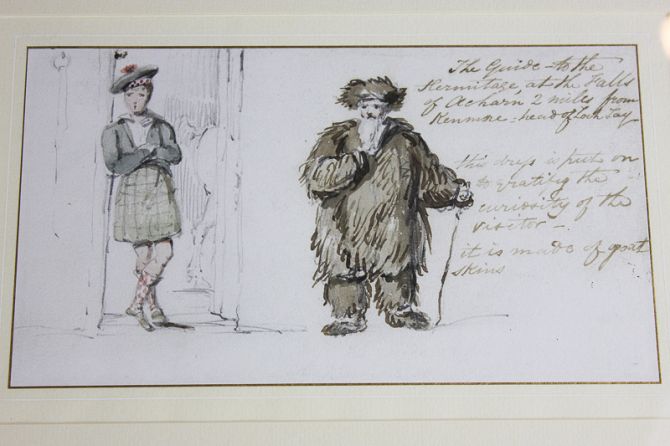 The Guide to the
Hermitage, at the Falls
of Acharn 2 miles from
Kenmore - head of Loch Tay
this dress is put on
to gratify the
curiosity of the
visitor -
it is made of goat
skins